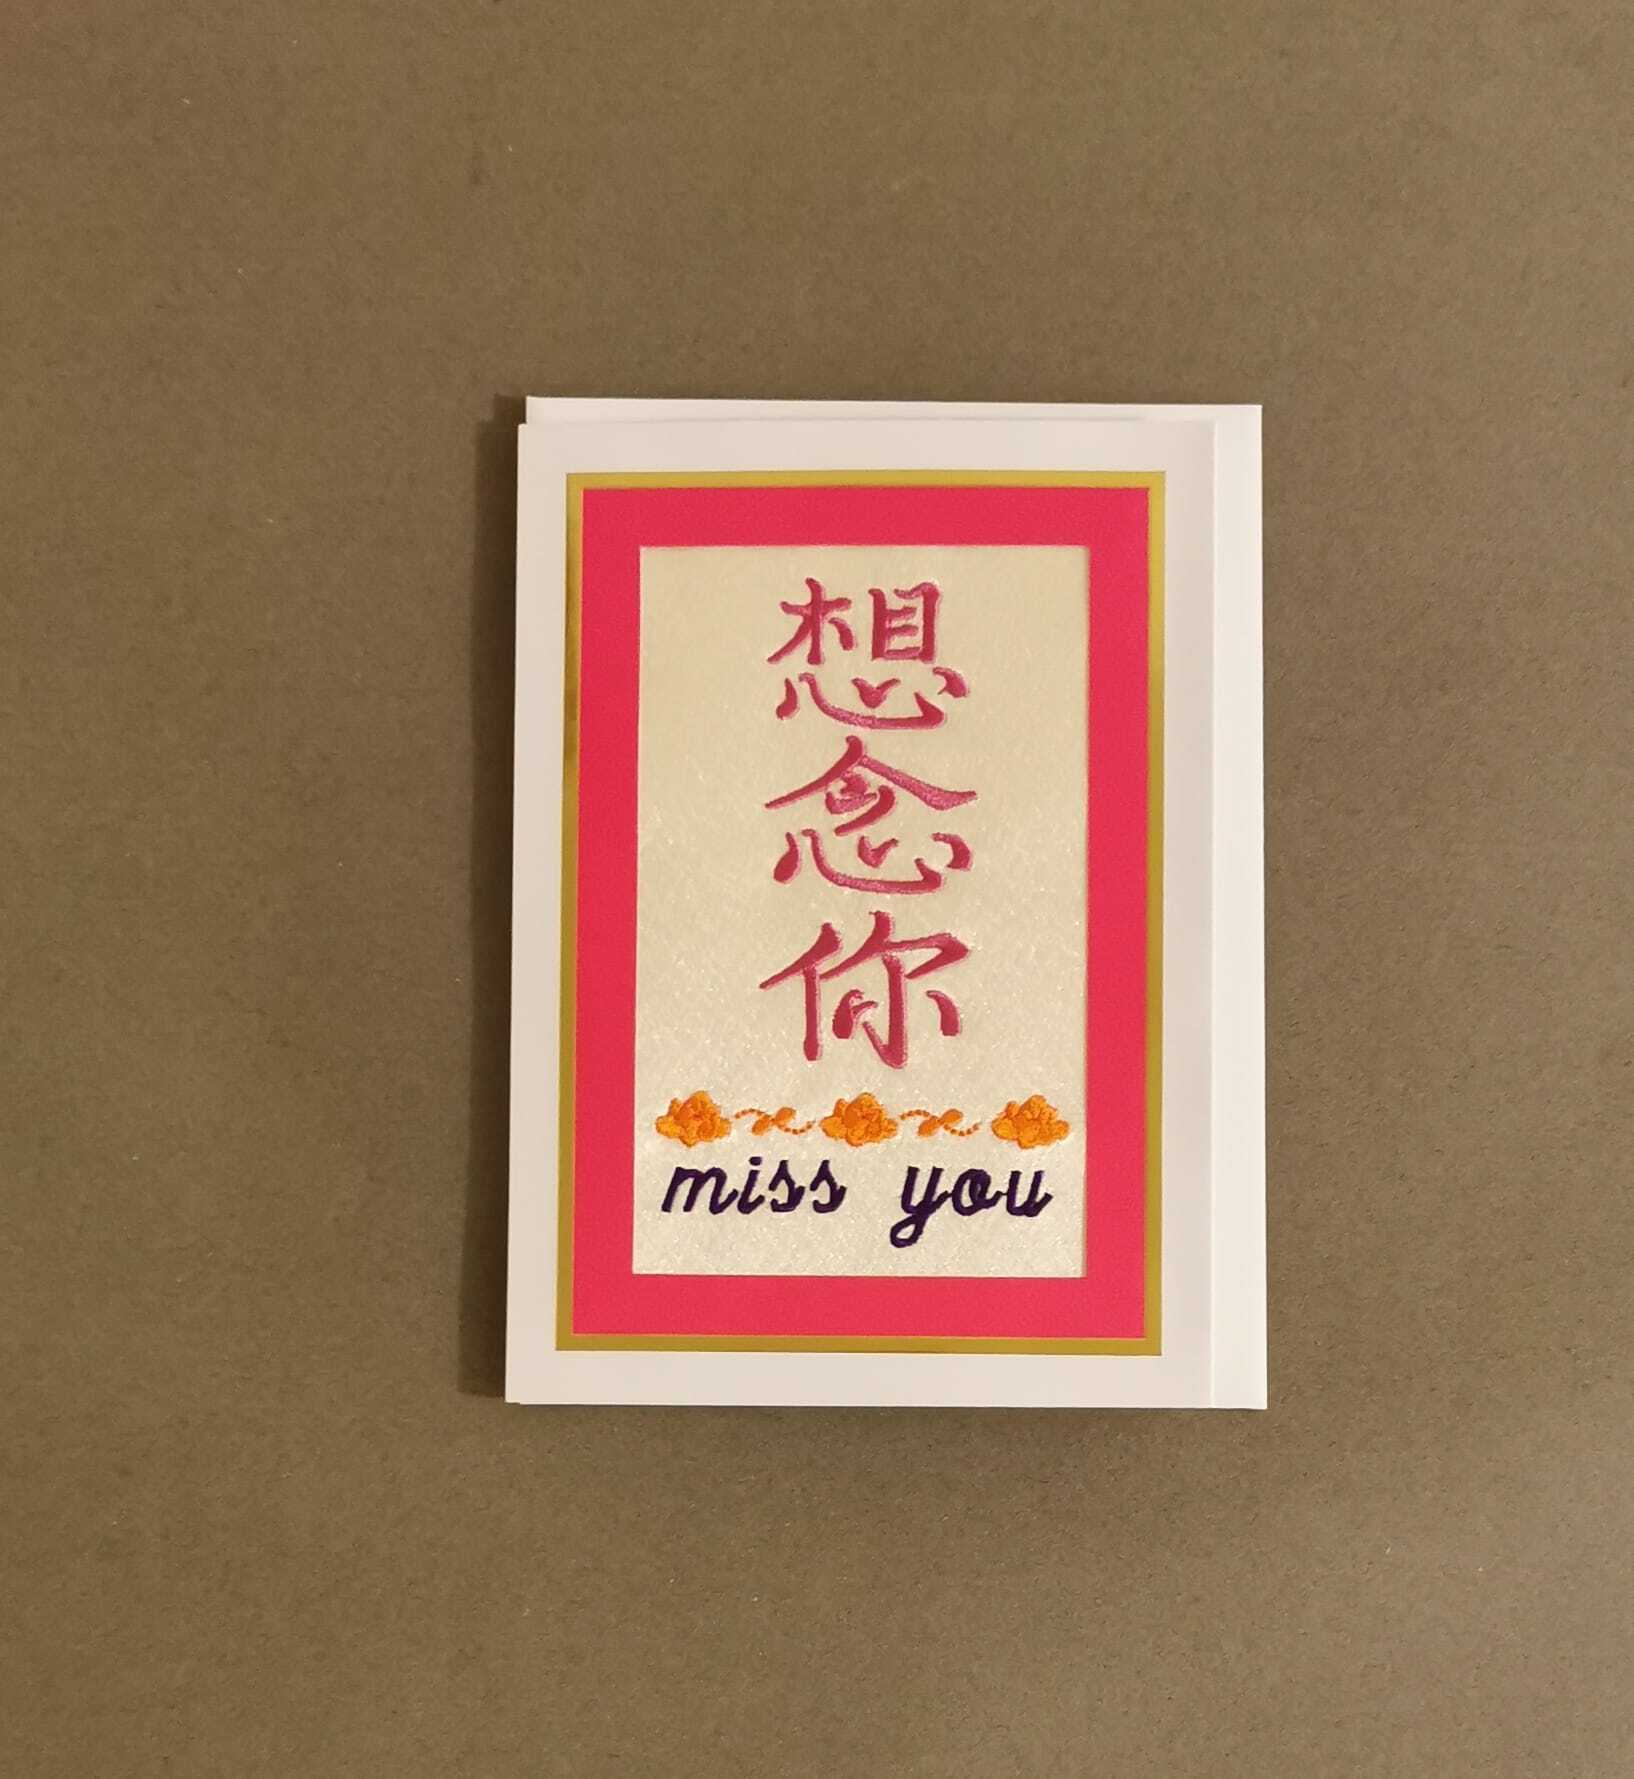 想念你
miss you